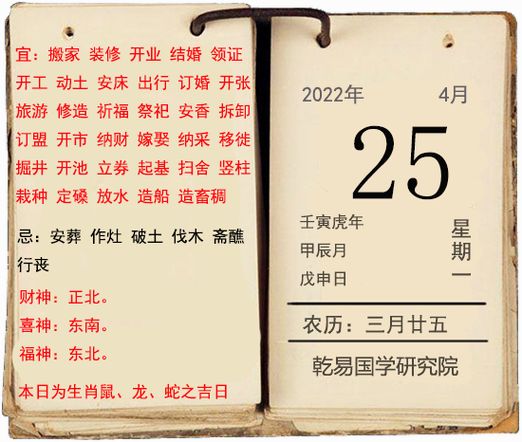 宜：搬家 装修 开业 结婚 领证
开工 动土 安床 出行 订婚 开张
旅游 修造 祈福 祭祀 安香 拆卸
订盟 开市 纳财 嫁娶 纳采 移徙
掘井 开池 立券 起基 扫舍 竖柱
栽种 定磉 放水 造船 造畜稠
忌：安葬 作灶 破土 伐木 斋醮
行丧
财神：正北。
喜神：东南。
福神：东北。
本日为生肖鼠、龙、蛇之吉日
2022年 4月
25
壬寅虎年
甲辰月
戊申日
星期一
农历：三月廿五
乾易国学研究院